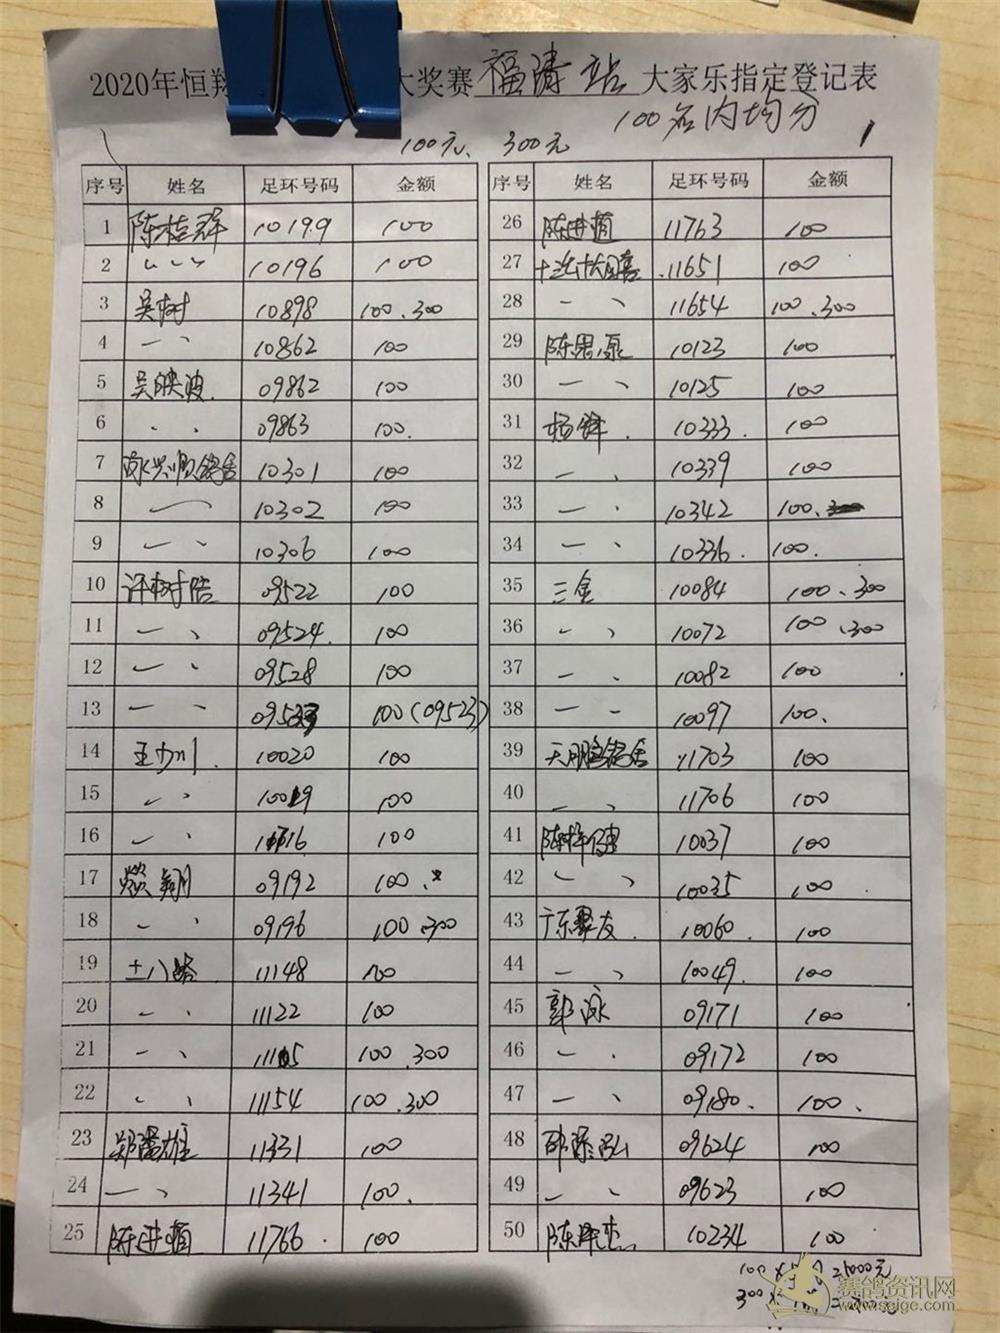 2020年恒翔 大奖赛 福清站 大家乐指定登记表
100名内均分
100元、 300元 1
序号 姓名 足环号码 金额 序号 姓名 足环号码 金额
1 陈桂群 10199 100 26 陈进植 11763 100
2 〃 10196 100 27 11651 100
3 吴树 10898 100.300 28 〃 11654 100.300
4 〃 10862 100 29 陈思源 10123 100
5 吴映波 09862 100 30 〃 10125 100
6 〃 09863 100. 31 杨锋 10333 100
7 10301 100 32 〃 10339 100
8 〃 10302 100 33 〃 10342 100.
9 〃 10306 100 34 〃 10336 100.
10 许树浩 09522 100 35 三金 10084 100.300
11 〃 09524 100 36 〃 10072 100.300
12 〃 09528 100 37 〃 10082 100
13 〃 100(09523) 38 〃 10097 100.
14 王少川 10020 100 39 天鹏鸽舍 11703 100
15 〃 10019 100 40 〃 11706 100
16 〃 11716 100 41 10037 100
17 燚翔 09192 100 42 〃 10035 100
18 〃 09196 100.300 43 广东聚友 10060 100
19 十八塔 11148 100 44 〃 10049 100
20 〃 11122 100 45 郭泳 09171 100
21 〃 11105 100.300 46 〃 09172 100
22 〃 11154 100.300 47 〃 09180 100.
23 雄 11331 100 48 09624 100
24 〃 11341 100. 49 〃 09623 100
25 陈进植 11766 100 50 10234 100
100 元
300 元
赛鸽资讯网
www.saige.com